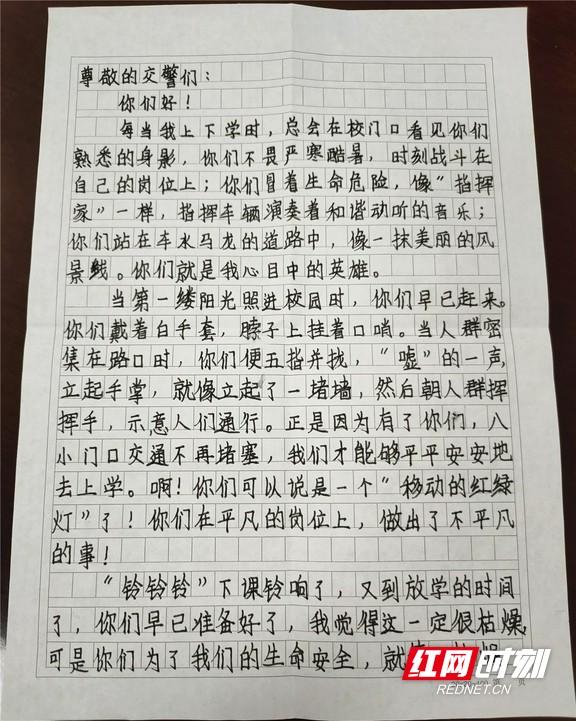 尊敬的交警们：
你们好！
每当我上下学时，总会在校门口看见你们
熟悉的身影，你们不畏严寒酷暑，时刻战斗在
自己的岗位上；你们冒着生命危险，像“指挥
家”一样，指挥车辆演奏着和谐动听的音乐；
你们站在车水马龙的道路中，像一抹美丽的风
景线。你们就是我心目中的英雄。
当第一缕阳光照进校园时，你们早已赶来。
你们戴着白手套，脖子上挂着口哨。当人群密
集在路口时，你们便五指并拢，“嘘”的一声，
立起手掌，就像立起了一堵墙，然后朝人群挥
挥手，示意人们通行。正是因为有了你们，八
小门口交通不再堵塞，我们才能够平平安安地
去上学。啊！你们可以说是一个“移动的红绿
灯”了！你们在平凡的岗位上，做出了不平凡
的事！
“铃铃铃”下课铃响了，又到放学的时间
了，你们早已准备好了，我觉得这一定很枯燥，
可是你们为了我们的生命安全，就
红网时刻
REDNET.CN
页